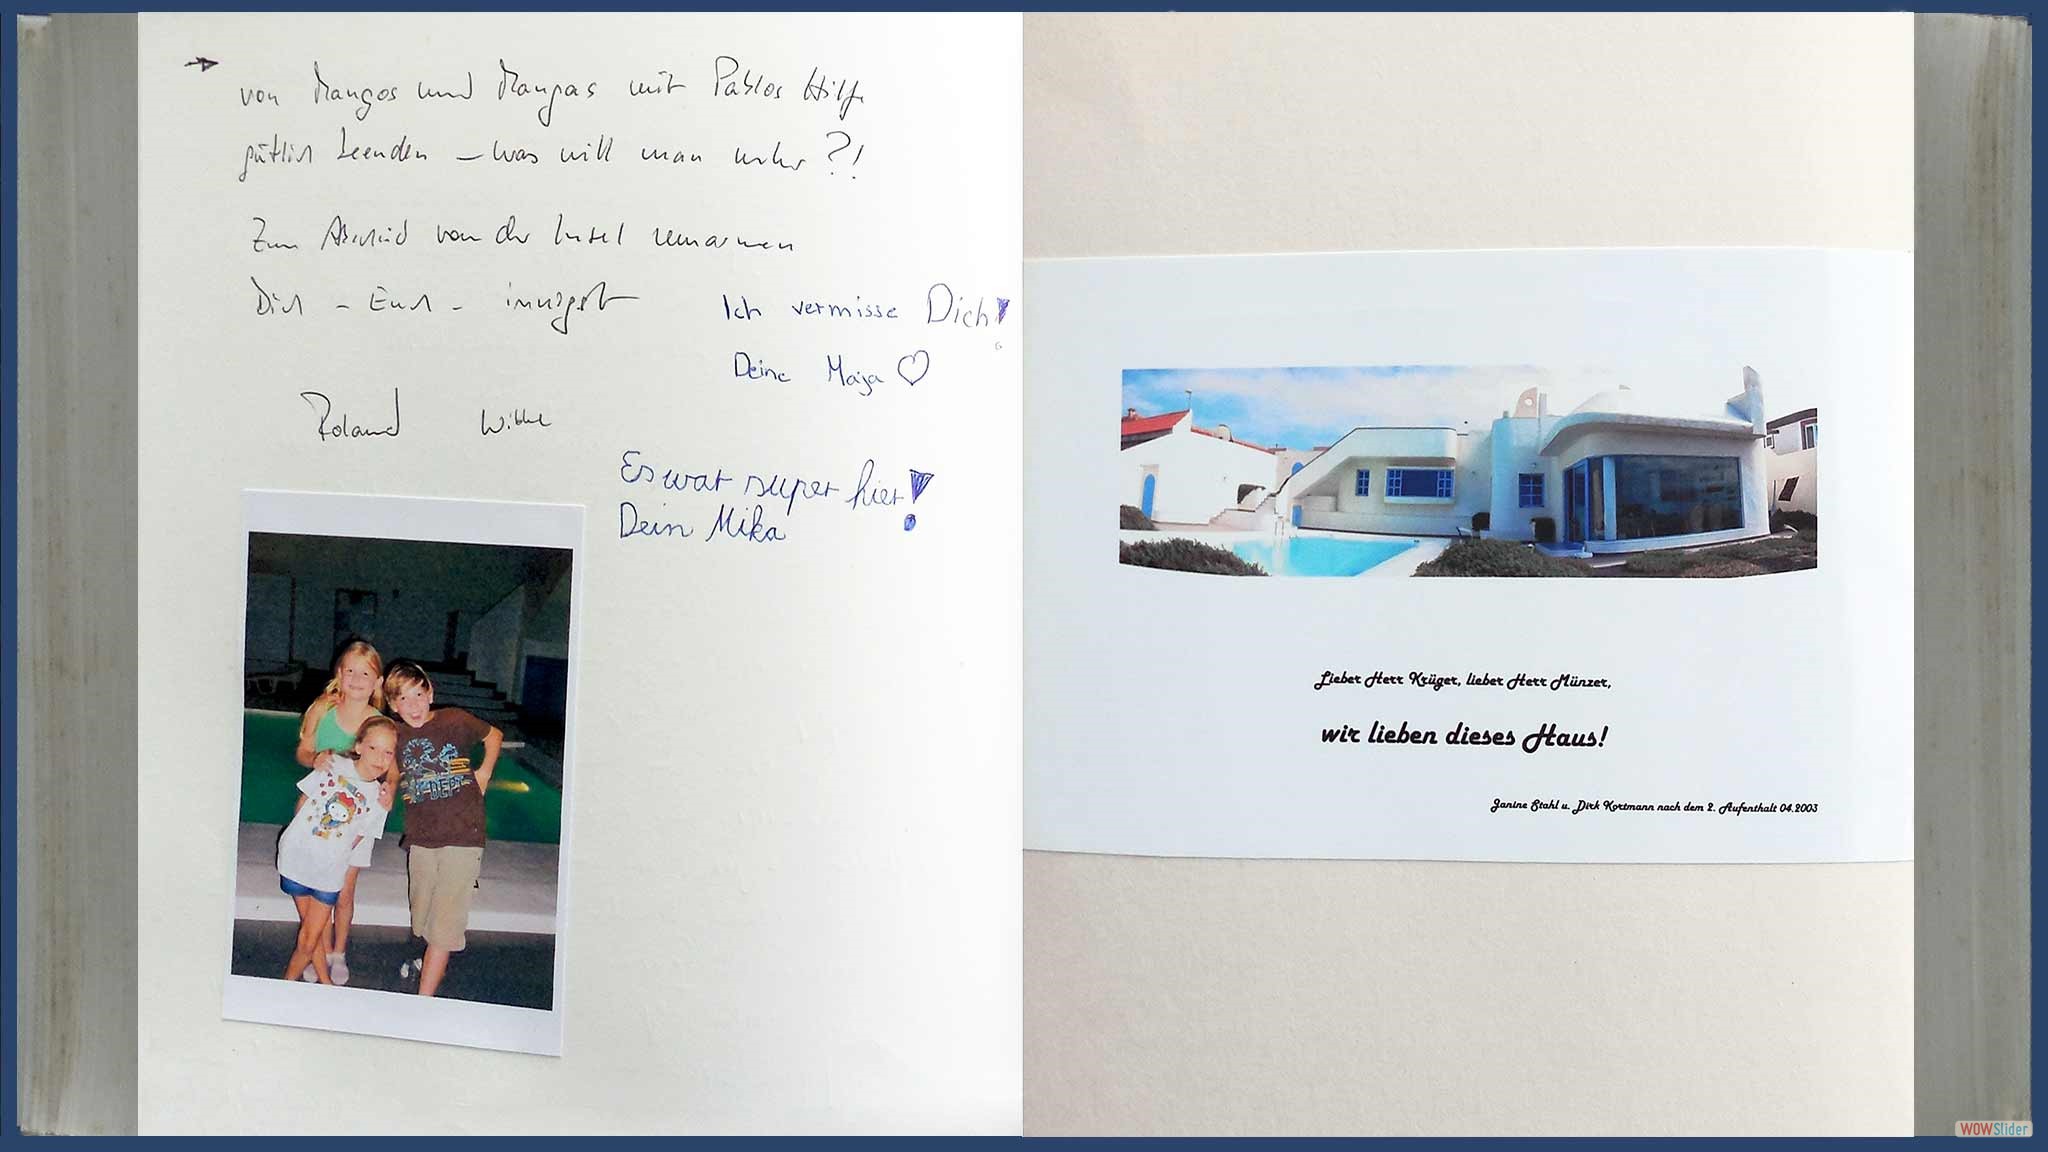 von Mangos und Mangas mit Pablos Hilfe
gütlich beenden – was will man mehr?!
Zum Abschied von der Insel umarmen
Dich – Euch – innigst
Roland
Ich vermisse Dich!
Deine Maja ♡
Es war super hier!
Dein Mika
DEPT
Lieber Herr Krüger, lieber Herr Münzer,
wir lieben dieses Haus!
Janine Stahl u. Dirk Kortmann nach dem 2. Aufenthalt 04.2003
WOWSlider